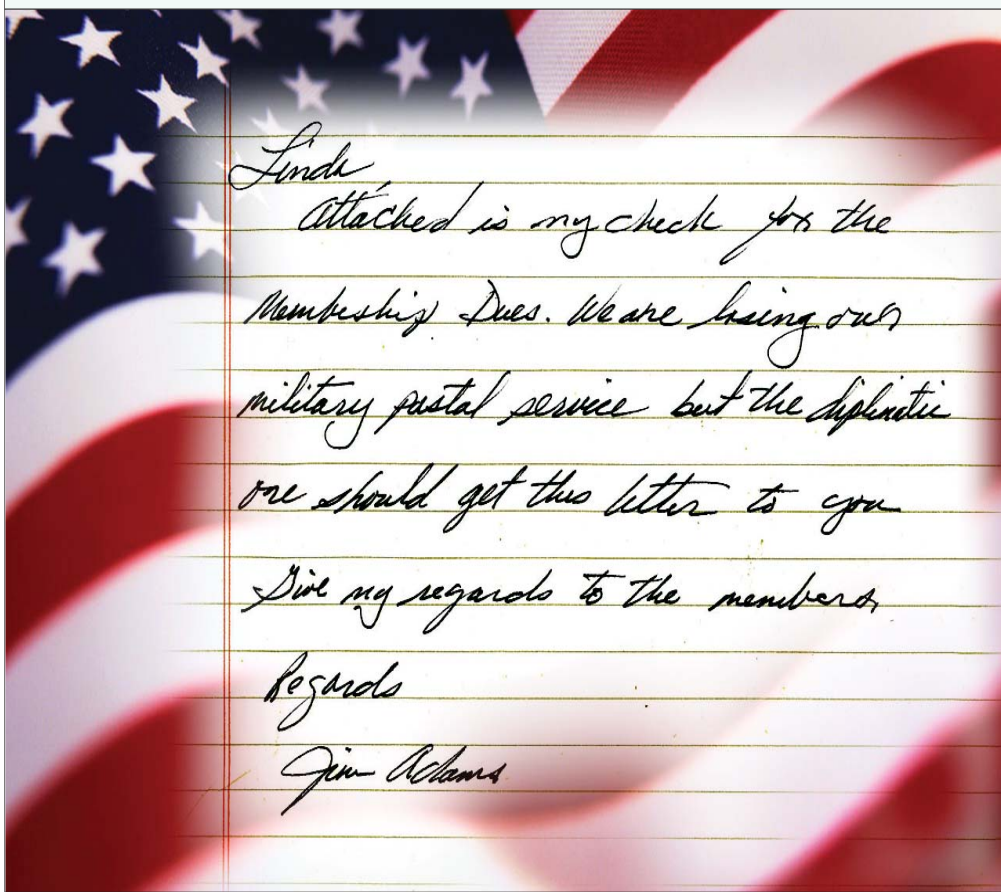 Linda,
Attached is my check for the
Membership Dues. We are losing our
military postal service but the diplimatic
one should get this letter to you
Give my regards to the members,
Regards
Jim Adams